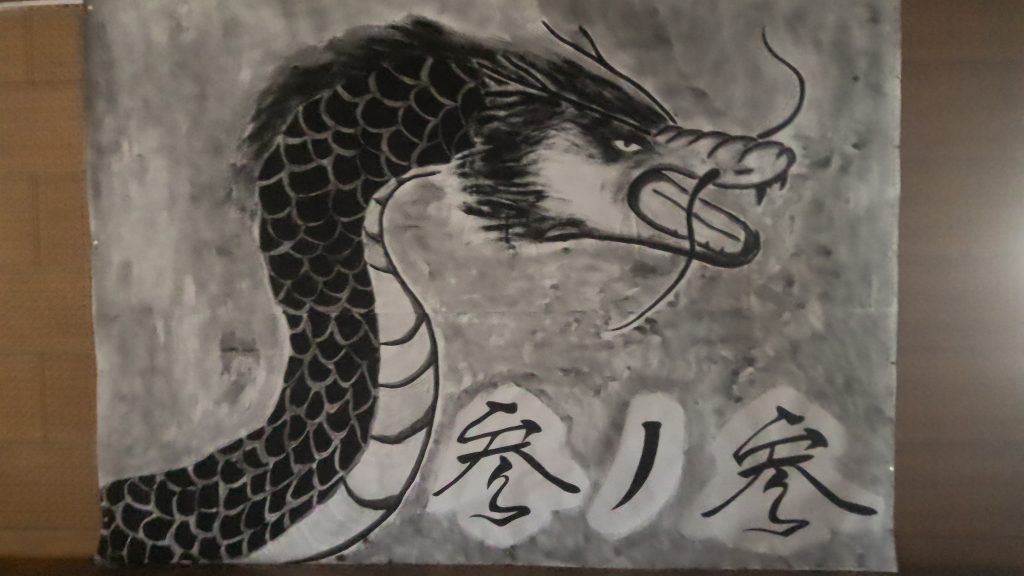 参ノ参